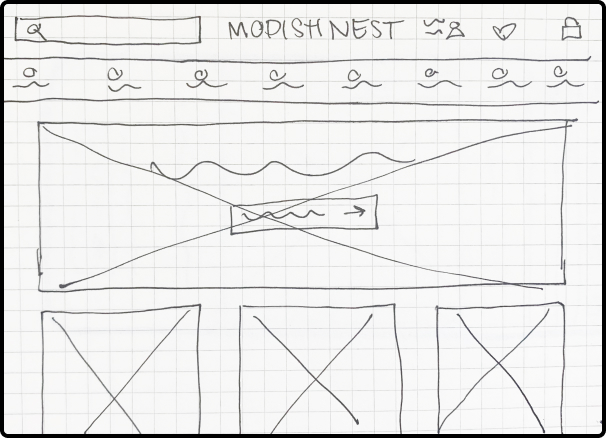 MODISH NEST